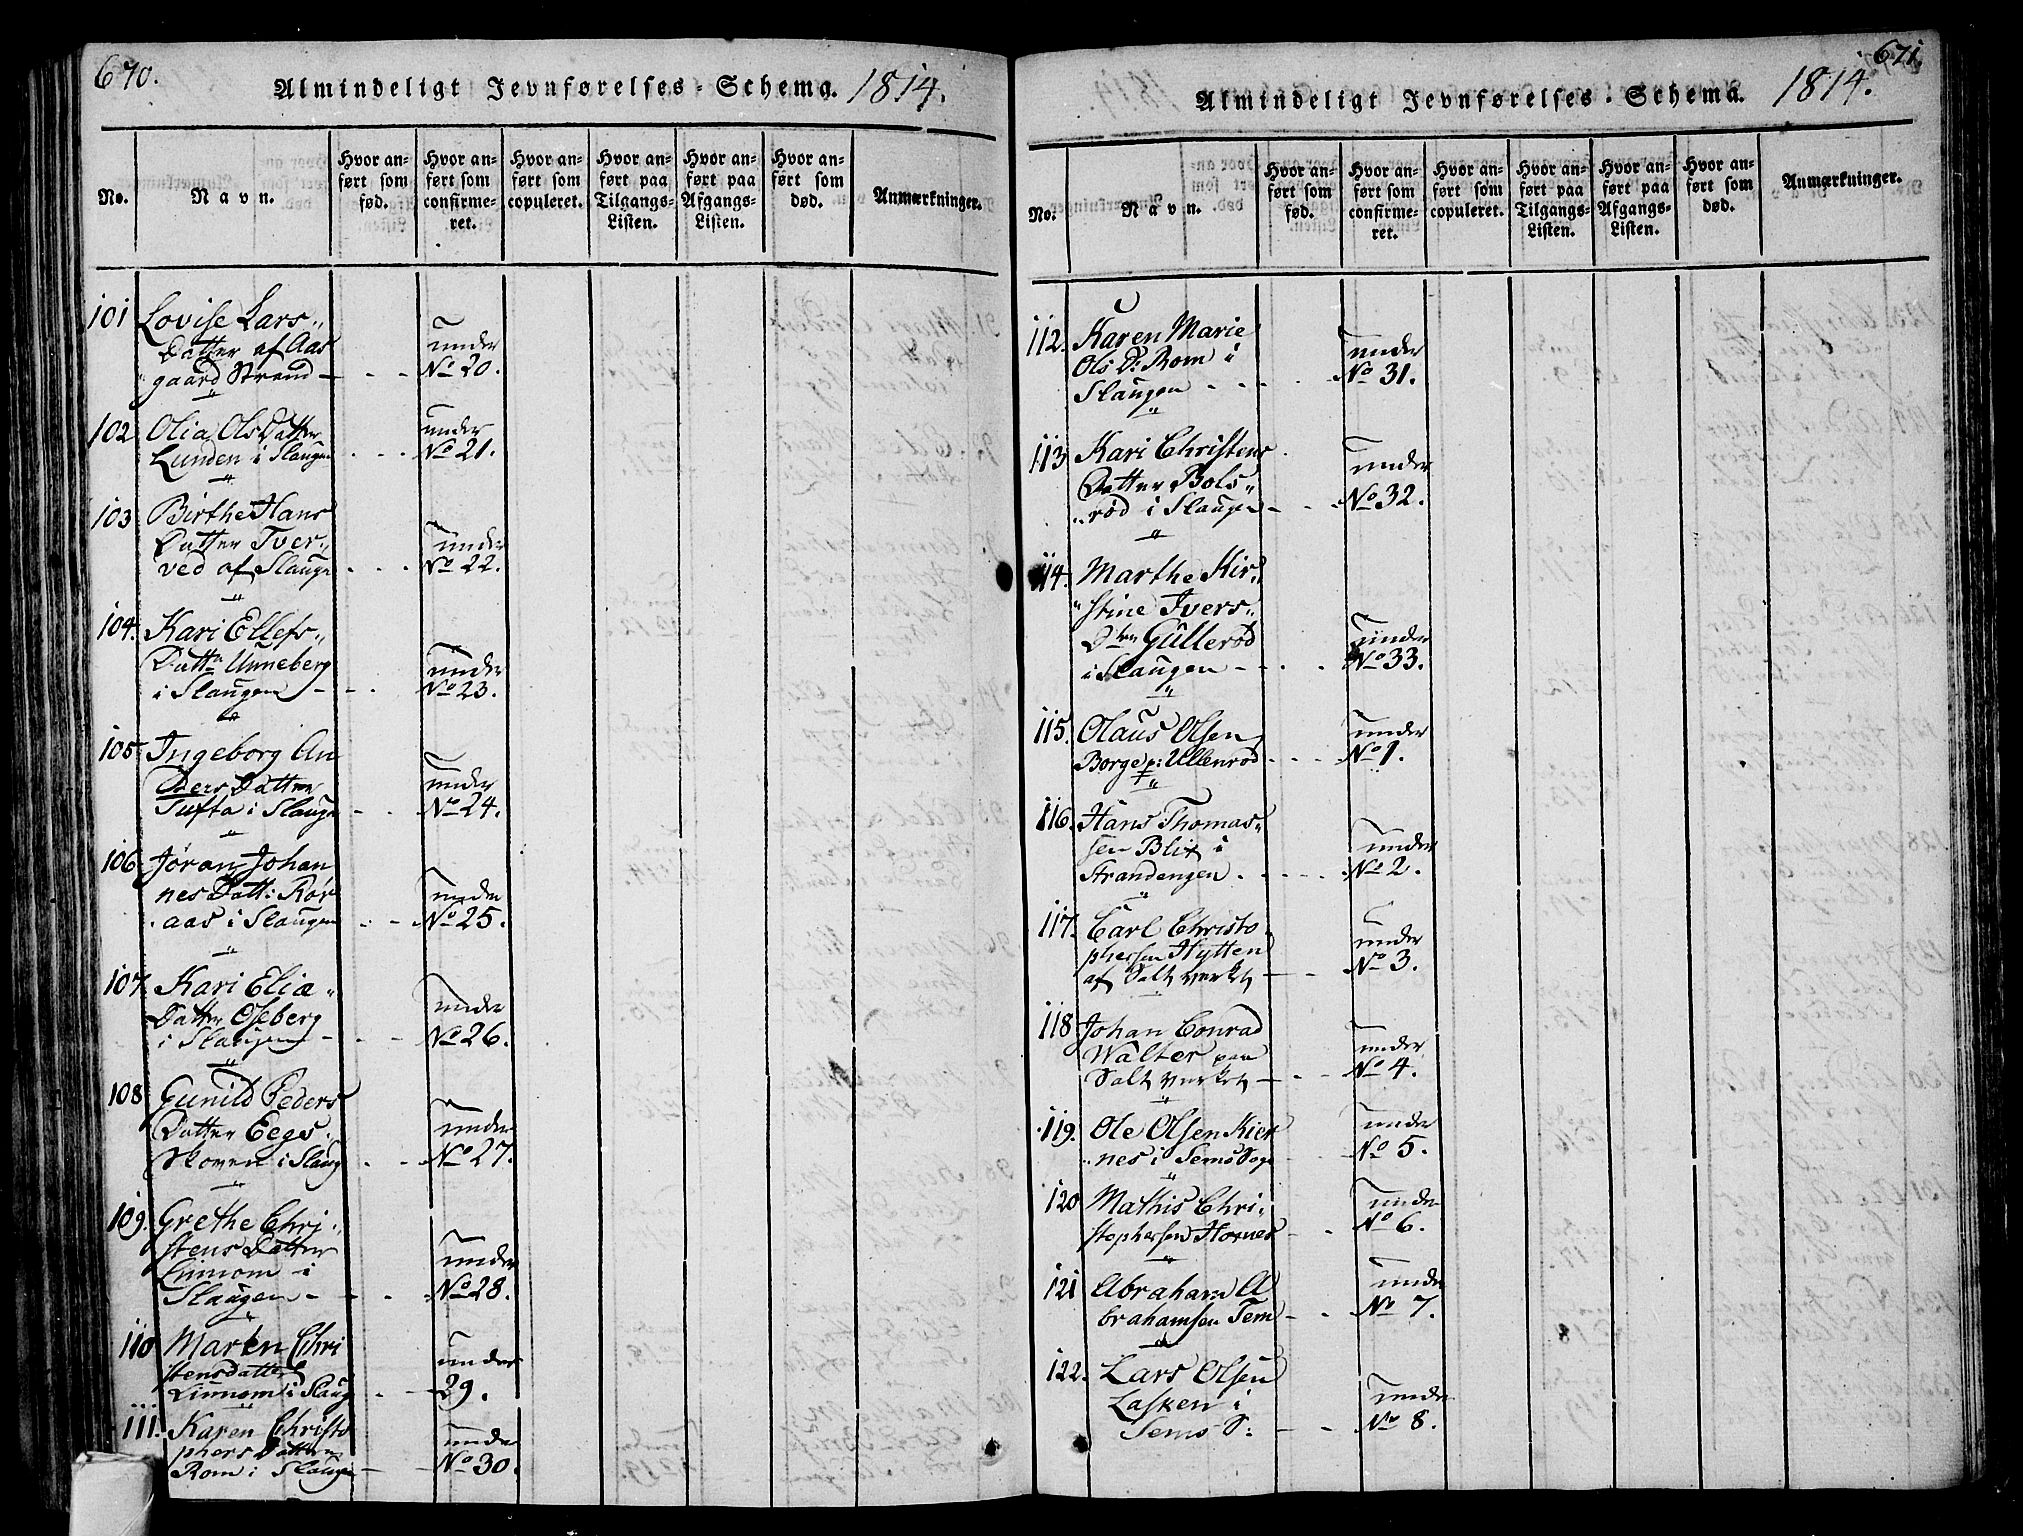 670.
Almindeligt Jevnførelses-Schema. 1814.
No.
Navn.
Hvor an-
ført som
fød.
Hvor an-
ført som
confirme-
ret.
Hvor an-
ført som
copuleret.
Hvor an-
ført paa
Tilgangs-
Listen.
Hvor an-
ført paa
Afgangs-
Listen.
Hvor an-
ført som
død.
Anmærkninger.
101 Lovise Lars„
Datter af Aas
gaard Strand — - - under No 20.
102 Olia Ols Datter
Lunden i Slaugen - - - under No 21.
103 Birthe Hans
Datter Tver„
ved af Slaugn - - - under No 22.
104. Kari Ellefs„
Dattr Unneberg
i Slaugen - - - under No 23.
105 Ingeborg An
ders Datter
Tufta i Slaugn - - under No 24.
106 Jøran Johan
nes Datt: Rør
aas i Slaugen - - under No 25.
107. Kari Eliæ„
Datter Oseberg
i Slaugen - - - under No 26.
108 Gunild Peders
Datter Eegs„
Skoven i Slaug - - under No 27.
109. Grethe Chri„
stens Datter
Linnom i
Slaugen - - - under No 28.
110 Maren Chri
stensdatter
Linnom i Slaug - - under 29.
111. Karen Christo
phers Datter
Rom i Slaugn - - under No 30.
671.
Almindeligt Jevnførelses-Schema. 1814.
No.
Navn.
Hvor an-
ført som
fød.
Hvor an-
ført som
confirme-
ret.
Hvor an-
ført som
copuleret.
Hvor an-
ført paa
Tilgangs-
Listen.
Hvor an-
ført paa
Afgangs-
Listen.
Hvor an-
ført som
død.
Anmærkninger.
112. Karen Marie
Ols D: Rom i
Slaugen - - - - under No 31.
113 Kari Christens
Datter Bols„
„rød i Slaugen - - - under No 32.
114. Marthe Kir„
„stine Ivers„
Dtr Gullerød
i Slaugen - - - under No 33.
115. Olaus Olsen
Borge p: Ullenrød - - - under No 1.
116. Hans Thomas„
sen Blix i
Strandengen - - - under No 2.
117. Carl Christo„
phersen Hytten
af Saltverket - - under No 3.
118 Johan Conrad
Walter paa
Saltverket - - - under No 4.
119. Ole Olsen Kier
„nes i Sems Sogn - - under No 5.
120 Mathis Chri„
stophersen Hornes - - under No 6.
121 Abraham A
brahamsen Tem - - under No 7.
122. Lars Olsen
Lasken i
Sems S: - - under No 8.